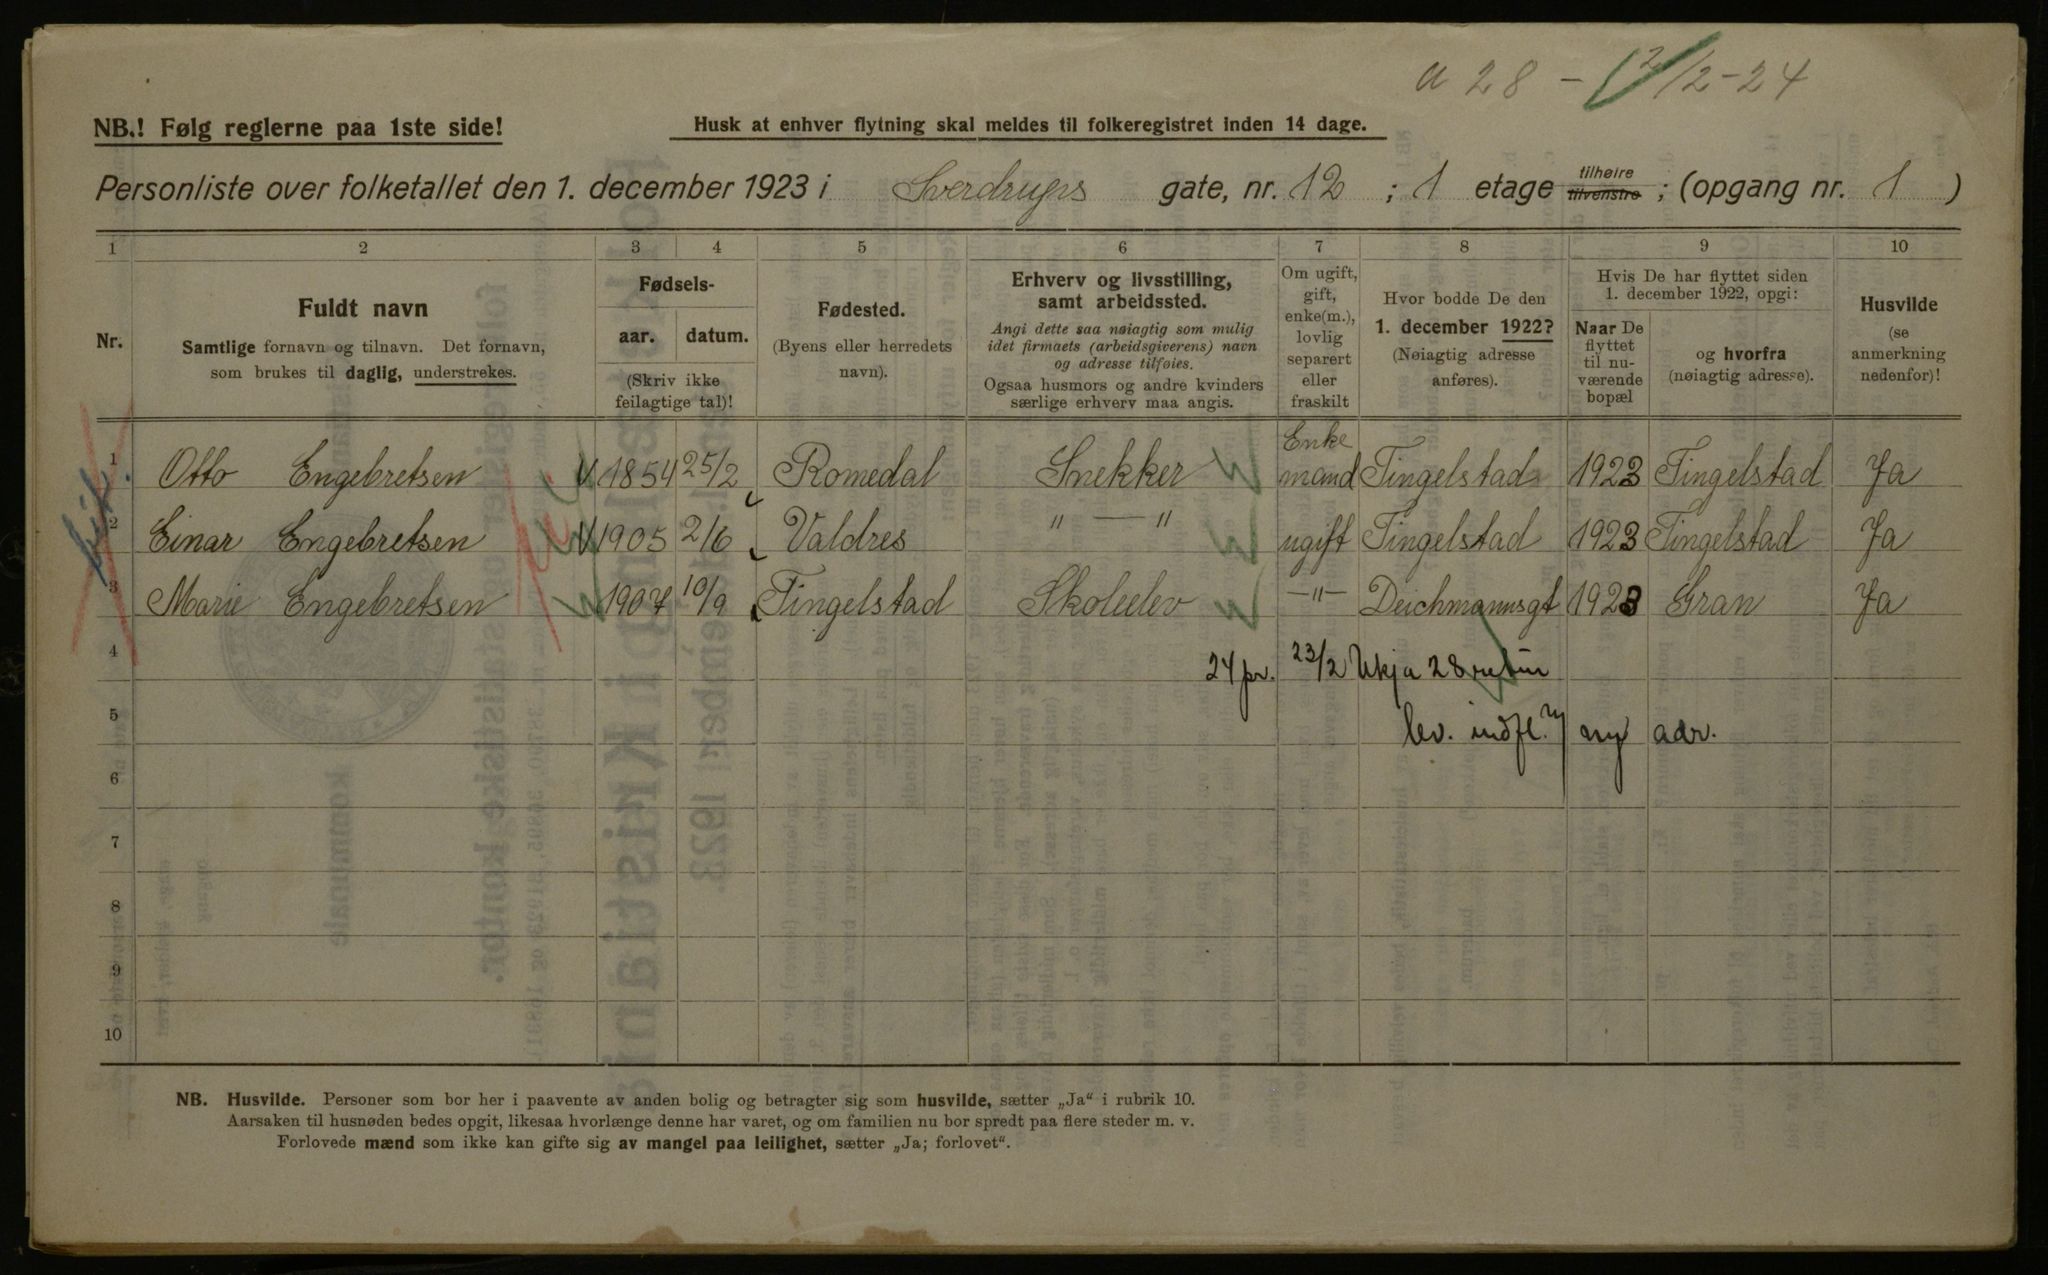 a 28 - 2/2-24
NB.! Følg reglerne paa 1ste side!
Husk at enhver flytning skal meldes til folkeregistret inden 14 dage.
Personliste over folketallet den 1. december 1923 i Sverdrups gate, nr. 12 ; 1 etage tilhøire tilvenstre ; (opgang nr. 1 )
1 2 3 4 5 6 7 8 9 10
Nr.
Fuldt navn
Samtlige fornavn og tilnavn. Det fornavn,
som brukes til daglig, understrekes.
Fødsels-
aar. datum.
(Skriv ikke
feilagtige tal)!
Fødested.
(Byens eller herredets
navn).
Erhverv og livsstilling,
samt arbeidssted.
Angi dette saa nøiagtig som mulig
idet firmaets (arbeidsgiverens) navn
og adresse tilføies.
Ogsaa husmors og andre kvinders
særlige erhverv maa angis.
Om ugift,
gift,
enke(m.),
lovlig
separert
eller
fraskilt
Hvor bodde De den
1. december 1922?
(Nøiagtig adresse
anføres).
Hvis De har flyttet siden
1. december 1922, opgi:
Naar De
flyttet
til nu-
værende
bopæl
og hvorfra
(nøiagtig adresse).
Husvilde
(se
anmerkning
nedenfor)!
1 Otto Engebretsen 1854 25/2 Romedal Snekker Enke mand Tingelstad 1923 Tingelstad Ja
2 Einar Engebretsen 1905 2/6 Valdres " — " ugift Tingelstad 1923 Tingelstad Ja
3 Marie Engebretsen 1907 10/9 Tingelstad Skoleelev —"— Deichmannsgt 1923 Gran Ja
4 24 pr. 23/2 Ukja 28 retur
5 lev. indfl. ny adr.
6
7
8
9
10
NB. Husvilde. Personer som bor her i paavente av anden bolig og betragter sig som husvilde, sætter „Ja“ i rubrik 10.
Aarsaken til husnøden bedes opgit, likesaa hvorlænge denne har varet, og om familien nu bor spredt paa flere steder m. v.
Forlovede mænd som ikke kan gifte sig av mangel paa leilighet, sætter „Ja; forlovet“.